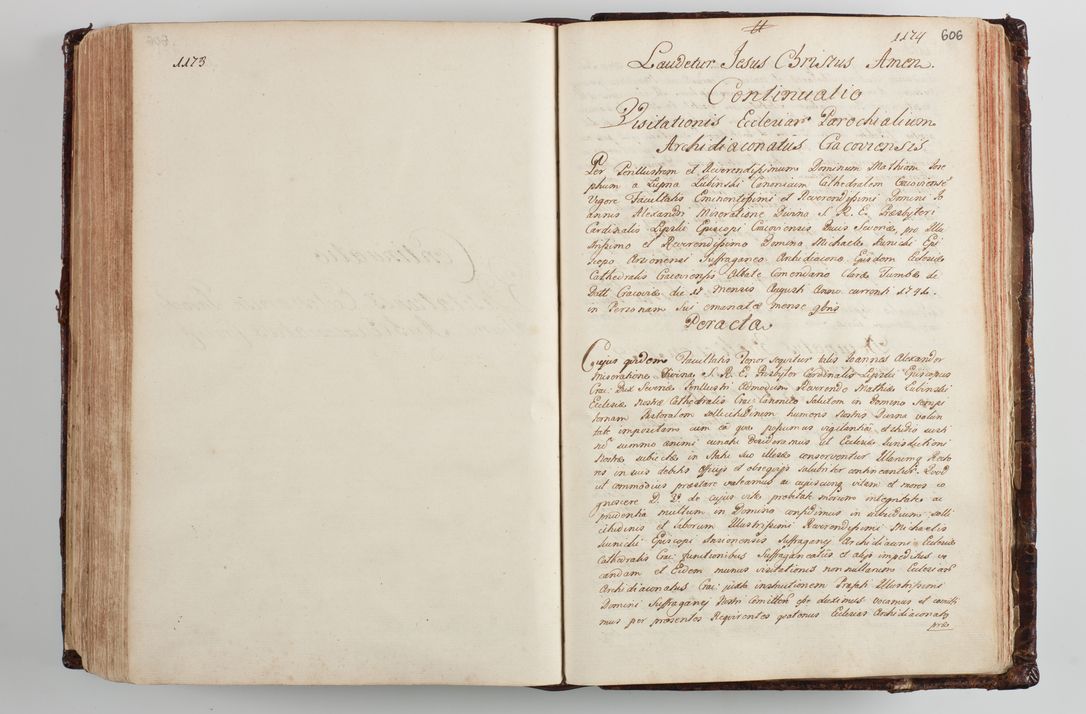 1173
1174 606
Laudetur Jesus Christus Amen.
Continuatio
Visitationis Ecclesiar Parochialium
Archidiaconatus Cracoviensis
Per Perillustrem et Reverendissimum Dominum Mathiam Jose
phum a Lubinski Canonicum Cathedralem Cracoviense
Vigore Facultatis Eminentissimi et Reverendissimi Domini Jo
annis Alexandri Miseratione Divina S. R. E. Præsbyteri
Cardinalis Lipski Episcopi Cracoviensis Ducis Severiæ, pro Illu
strissimo et Reverendissimo Domino Michaele Kunicki Epi
scopo Arsionensi Suffraganeo Archidiacono Ejusdem Ecclesiæ
Cathedralis Cracoviensis Abbate Comendario Claræ Tumbæ de
Datt Cracoviæ die 17 mensis Augusti Anno currenti 1741.
in Personam Sui emanatæ mense 9bris
Peracta
Cujus quidem Facultatis Tenor sequitur talis Joannes Alexander
Miseratione Divina S. R. E. Præsbyter Cardinalis Lipski Episcopus
Crac: Dux Severiæ Perillustri Admodum Reverendo Mathiæ Lubinski
Ecclesiæ Nostræ Cathedralis Crac: Canonico Salutem in Domino Sempi
ternam Pastoralem sollicitudinem humeris Nostris Divina volun
tate impositam cum ea qua possumus vigilantia et studio susti
summo animi conatu Desideramus ut Ecclesiæ Jurisdictioni
Nostræ subjectæ in Statu suo illesæ conserventur
in suis debitis et obsequijs salubriter contineantur. Quod
ut commodius præstare valeamus ac cujuscunq vitam et mores co
gnoscere D. de cujus vitæ probitate morum integritate ac
prudentia multum in Domino confidimus in subsidium solli
citudinis et laborum Illustrissimi Reverendissimi Michaelis
Kunicki Episcopi Arsionensis Suffraganej Archidiaconi Ecclesiæ
Cathedralis Crac: functionibus Suffraganeatus et alijs impeditus vo
candam et Eidem munus visitationis nonnullarum Ecclesiar
Archidiaconatus Crac: juxta instructionem Præfati Illustrissimi
Domini Suffraganej Nostri Comitten esse duximus vocamus et comitti
mus per præsentes Requirentes quatenus Ecclesias Archidiaconatus
præ